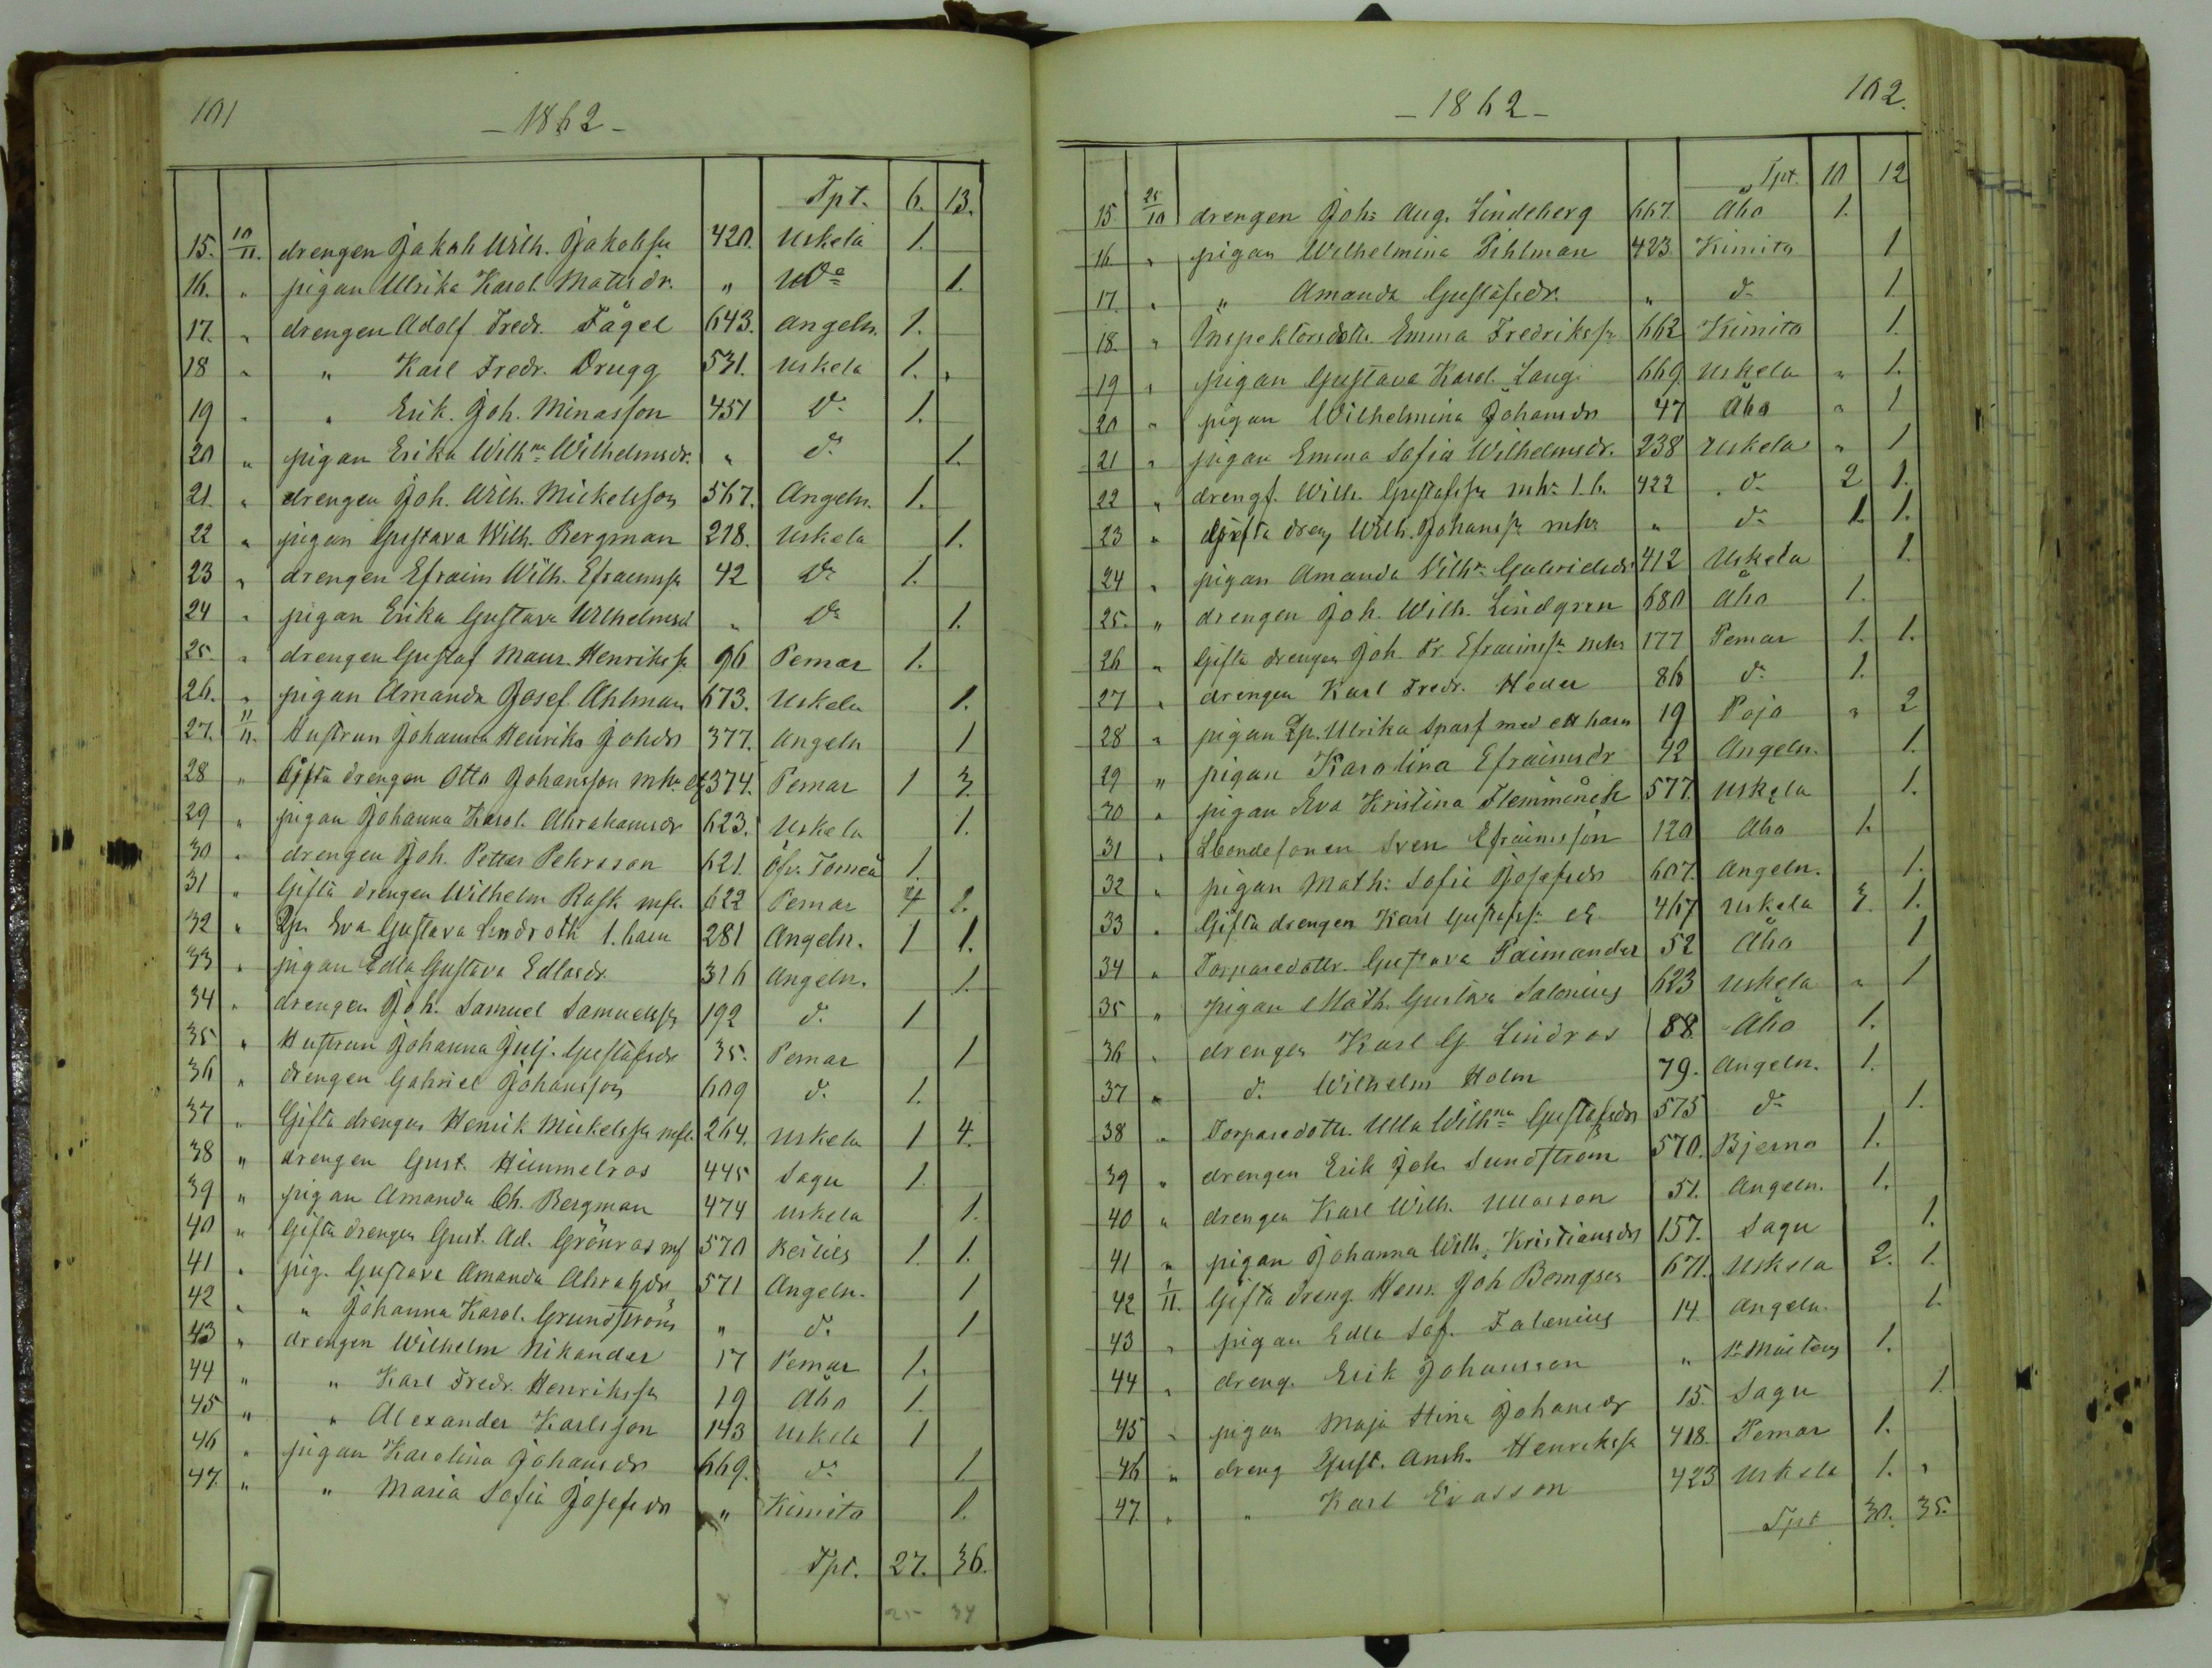 101
- 1862 -
Tpt. 6. 13.
15. 10/11. drengen Jakob Wilh. Jakobss. 420. Uskela 1.
16. " pigan Ulrika Karol. Matsdr. " 1.
17. " drengen Adolf Fredr. Fågel 643. Angeln. 1.
18 " " Karl Fredr. Drugg 531. Uskela 1.
19 " " Erik. Joh. Minasson 451 d:o 1.
20 " pigan Erika Wilh:na Wilhelmsdr. " d:o 1.
21. " drengen Joh. Wilh. Mickelsson 567. Angeln. 1.
22 " pigan Gustava Wilh. Bergman 218. Uskela 1.
23 " drengen Efraim Wilh. Efraimss. 42 d:o 1.
24 " pigan Erika Gustava Wilhelmsd. " d:o 1.
25. " drengen Gustaf Maur. Henrikss. 96 Pemar 1.
26. " pigan Amanda Josef. Ahlman 673. Uskela 1.
27. 11/11. Hustrun Johanna Henrika Johdr 377. Angeln 1
28 " Gifta drengen Otto Johansson 374. Pemar 1 3.
29 " pigan Johanna Karol. Abrahamsdr 623. Uskela 1.
30 " drengen Joh. Petter Pehrsson 621. Öfv. Torneå 1.
31 " Gifta drengen Wilhelm Rask mfl. 622 Pemar 4 2.
32 " Lp. Eva Gustava Lindroth 1. barn 281 Angeln. 1 1.
33 " pigan Edla Gustava Edlasdr. 316 Angeln. 1.
34 " drengen Joh. Samuel Samuelss. 192 d:o 1
35 " Hustrun Johanna Julj. Gustafsdr 35. Pemar 1
36 " drengen Gabriel Johansson 609 d:o 1.
37 " Gifta drengen Henrik Mickelss. mfl. 264. Uskela 1 4.
38 " drengen Gust. Himmelros 445 Sagu 1.
39 " pigan Amanda Ch. Bergman 474 Uskela 1.
40 " Gifta drengen Gust. Ad. Grönros 570 Reslies 1. 1.
41 " pig. Gustava Amanda Abrahdr 571 Angeln. 1
42 " " Johanna Karol. Grundström " d:o 1
43 " drengen Wilhelm Nikander 17 Pemar 1.
44 " " Karl Fredr. Henrikss. 19 Åbo 1.
45 " " Alexander Karlsson 143 Uskela 1
46 " pigan Karolina Johansdr 669. d:o 1
47. " " Maria Sofia Josefsdr " Kimito 1.
Tpt. 27. 36.
25 34
102.
- 1862 -
Tpt. 10 12
15 25/10 drengen Joh: Aug. Lindeberg 667. Åbo 1.
16 " pigan Wilhelmina Pihlman 423. Kimito 1
17 " " Amanda Gustafsdr. " d:o 1.
18. " Inspektorsdottr. Emma Fredrikss. 662 Kimito 1.
19 " pigan Gustava Karol. Lang 669. Uskela " 1.
20 " pigan Wilhelmina Johansdr 47 Åbo " 1
21 " pigan Emma Sofia Wilhelmsdr. 238 Uskela " 1
22 " drengf. Wilh. Gustafss. mh: 1. b. 422 d:o 2 1.
23 " Gifta dreng Wilh. Johanss. mh: " d:o 1. 1.
24 " pigan Amanda Wilh:a Gabrielsdr 412 Uskela 1.
25. " drengen Joh. Wilh. Lindgren 680 Åbo 1.
26 " Gifta drengen Joh. Fr. Efraimss. mh: 177 Pemar 1. 1.
27 " drengen Karl Fredr. Heder 86 d:o 1.
28 " pigan Lp. Ulrika Sparf med ett barn 19 Pojo " 2
29 " pigan Karolina Efraimsdr 42 Angeln. 1.
30 " pigan Eva Kristina Flemminck 577. Uskela 1.
31 " Lbondesonen Sven Efraimsson 120 Åbo 1.
32 " pigan Math: Sofie Josefsdr 607. Angeln. 1.
33 " Gifta drengen Karl Gustafss. 467 Uskela 3. 1.
34 " Torparedottr. Gustava Paimander 52 Åbo 1
35 " pigan Math. Gustava Salonius 623 Uskela " 1
36 " drengen Karl G Lindros 88 Åbo 1.
37 " d:o Wilhelm Holm 79. Angeln. 1.
38 " Torparedottr. Ulla Wilh:na Gustafsdr 575 d:o 1.
39 " drengen Erik Joh. Sundström 570. Bjerno 1.
40 " drengen Karl Wilh. Ullasson 51. Angeln. 1.
41 " pigan Johanna Wilh. Kristiansdr 157. Sagu 1.
42 1/11. Gifta dreng. Henr. Joh 671. Uskela 2. 1.
43 " pigan Edla Sof. Falenius 14 Angeln. 1.
44 " dreng. Erik Johansson " St Mårtens 1.
45 " pigan Maja Stina Johansdr 15. Sagu 1
46 " dreng Gust. Ansh. Henrikss. 418. Pemar 1.
47. " " Karl Evasson 423 Uskela 1. "
Tpt 30. 35.